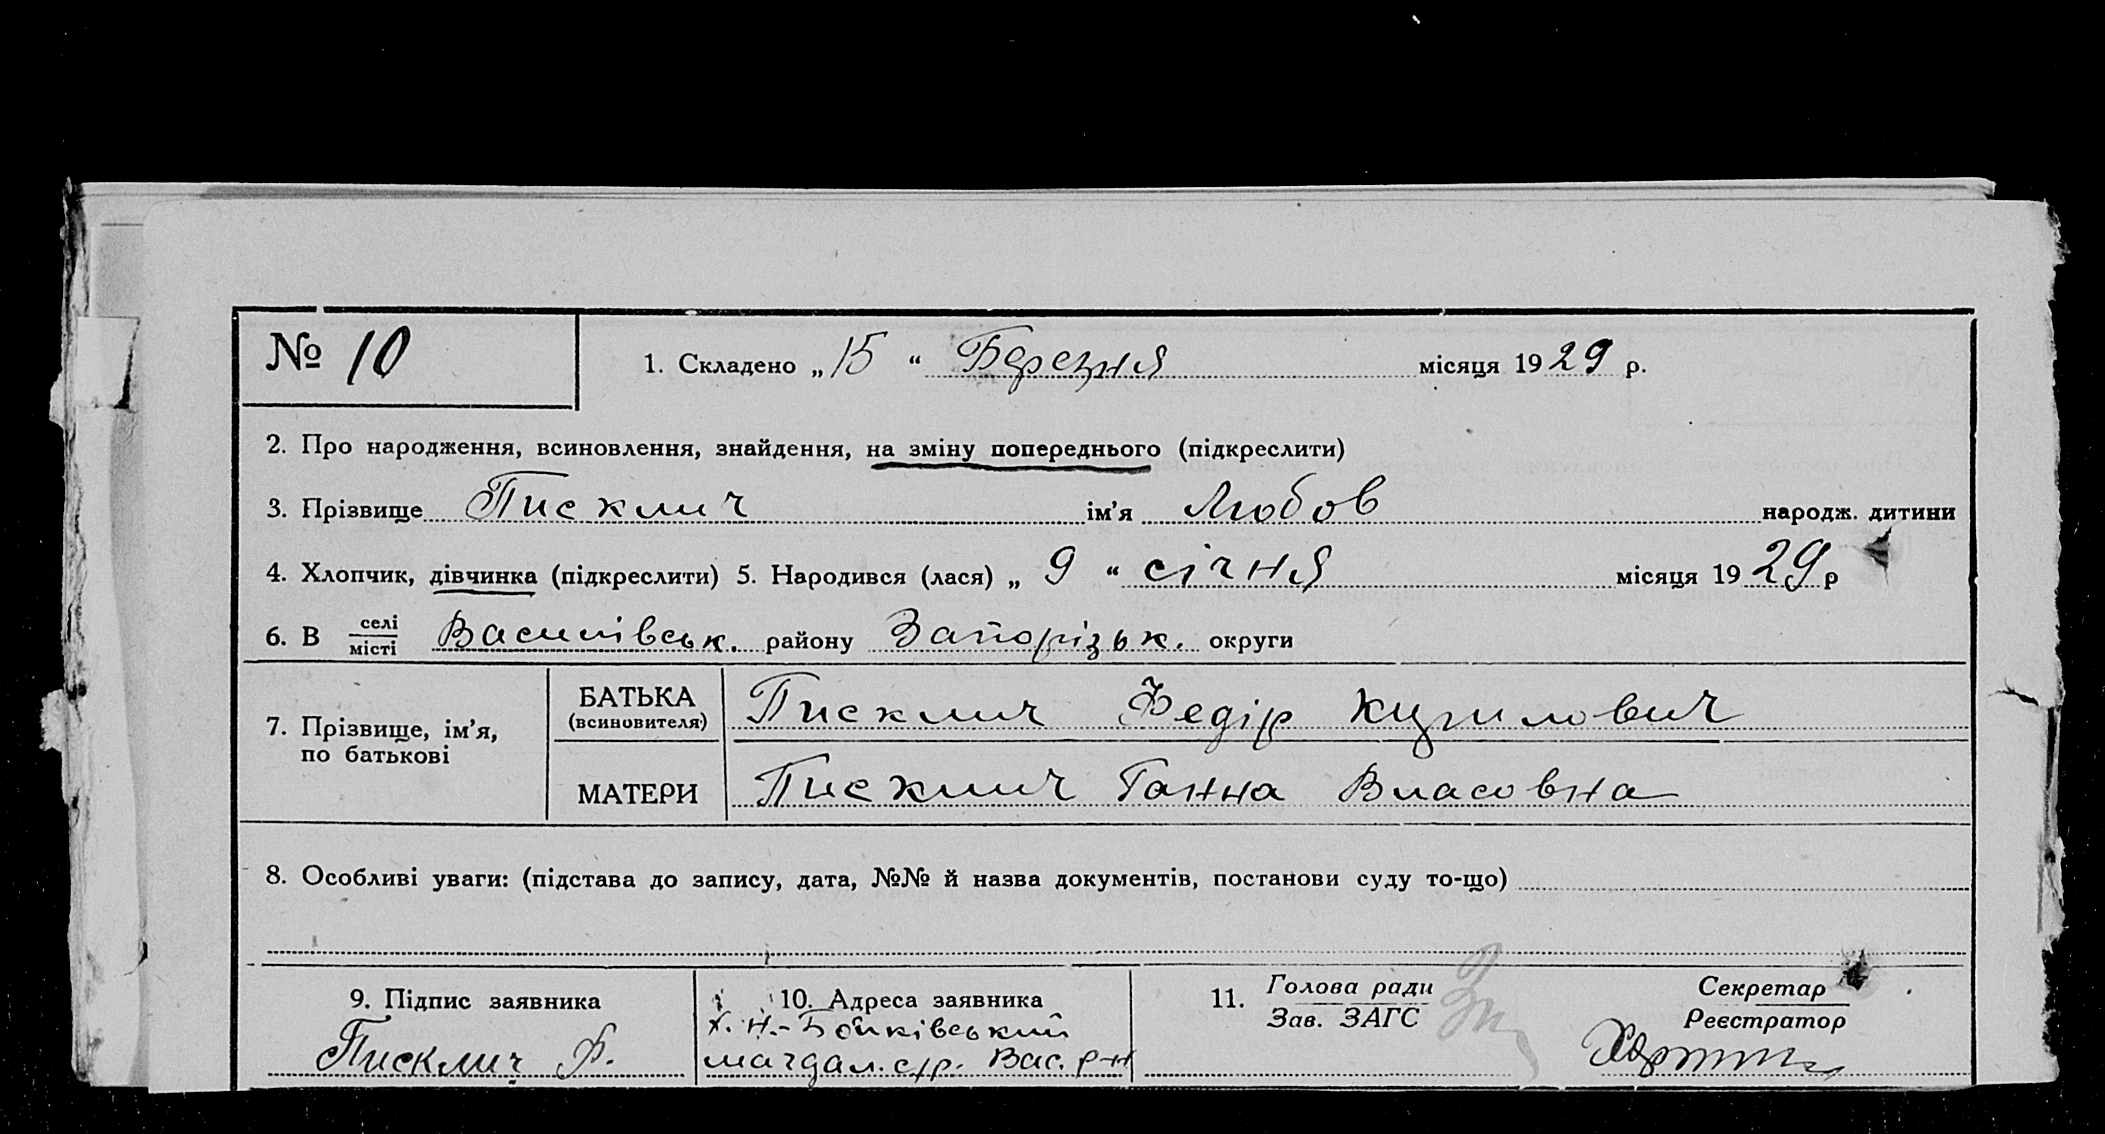 № 10
1. Складено „15“ Березня місяця 1929 р.
2. Про народження, всиновлення, знайдення, на зміну попереднього (підкреслити)
3. Прізвище Писклич ім’я Любов народж. дитини
4. Хлопчик, дівчинка (підкреслити) 5. Народився (лася) „9“ січня місяця 1929 р
6. В селі місті Василівськ. району Запорізьк. округи
7. Прізвище, ім’я, по батькові
БАТЬКА (всиновителя) Писклич Федір Кузмлович
МАТЕРИ Писклич Ганна Власовна
8. Особливі уваги: (підстава до запису, дата, №№ й назва документів, постанови суду то-що)
9. Підпис заявника
Писклич Ф.
10. Адреса заявника
х. Н.-Бойківський
магдал. с/р. Вас. р-н
11. Голова ради
Зав. ЗАГС
Секретар
Реєстратор